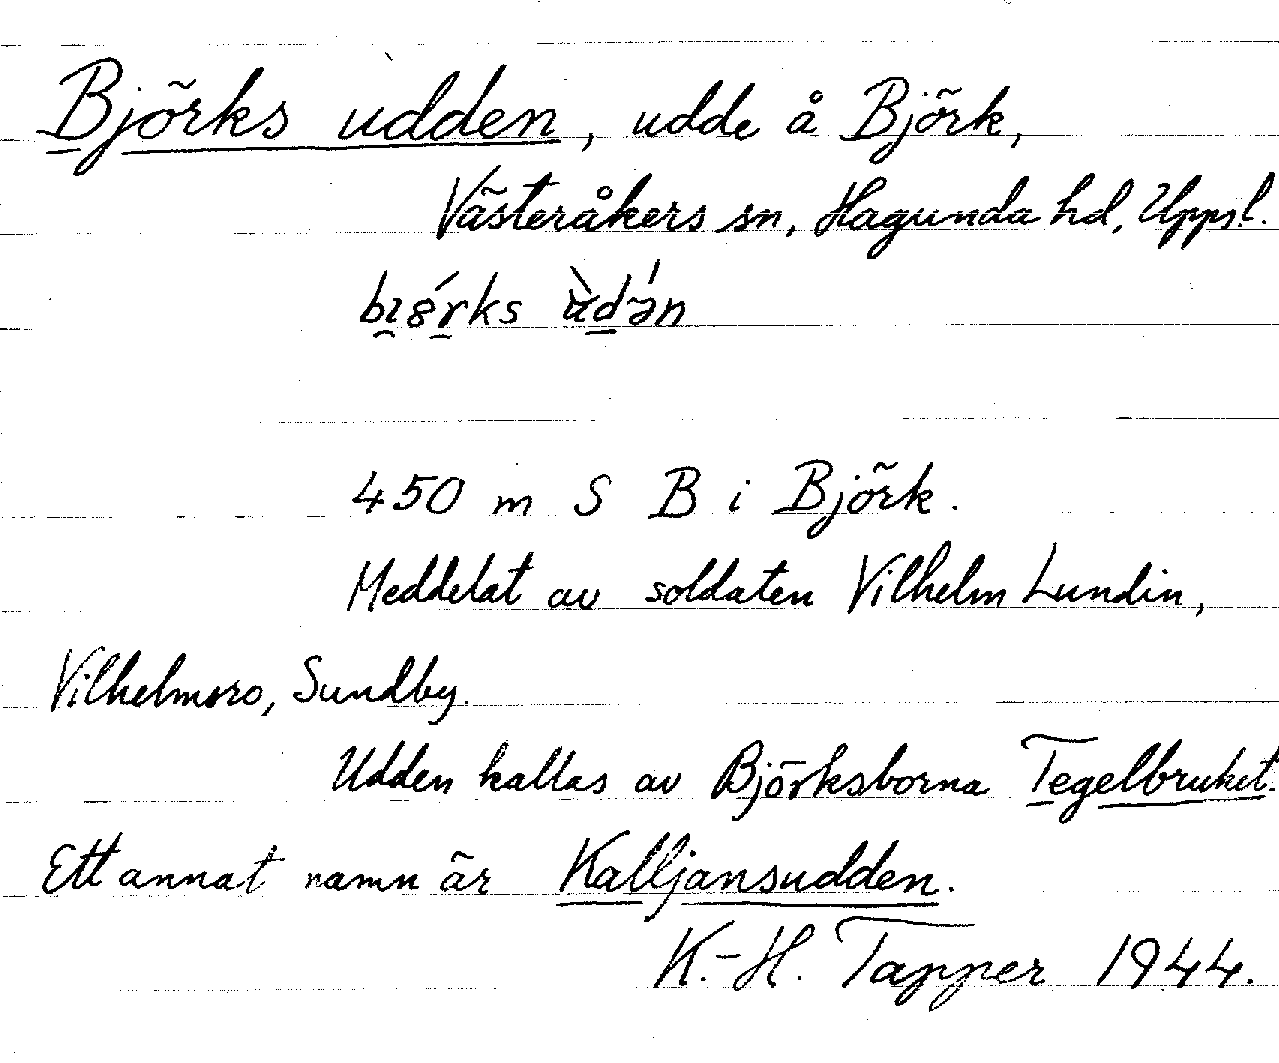 Björks udden, udde å Björk,
Västeråkers sn, Hagunda hd, Uppl.
450 m S B i Björk.
Meddelat av soldaten Vilhelm Lundin,
Vilhelmsro, Sundby.
Udden kallas av Björksborna Tegelbruket.
Ett annat namn är Kalljansudden.
K.-H. Tapper 1944.